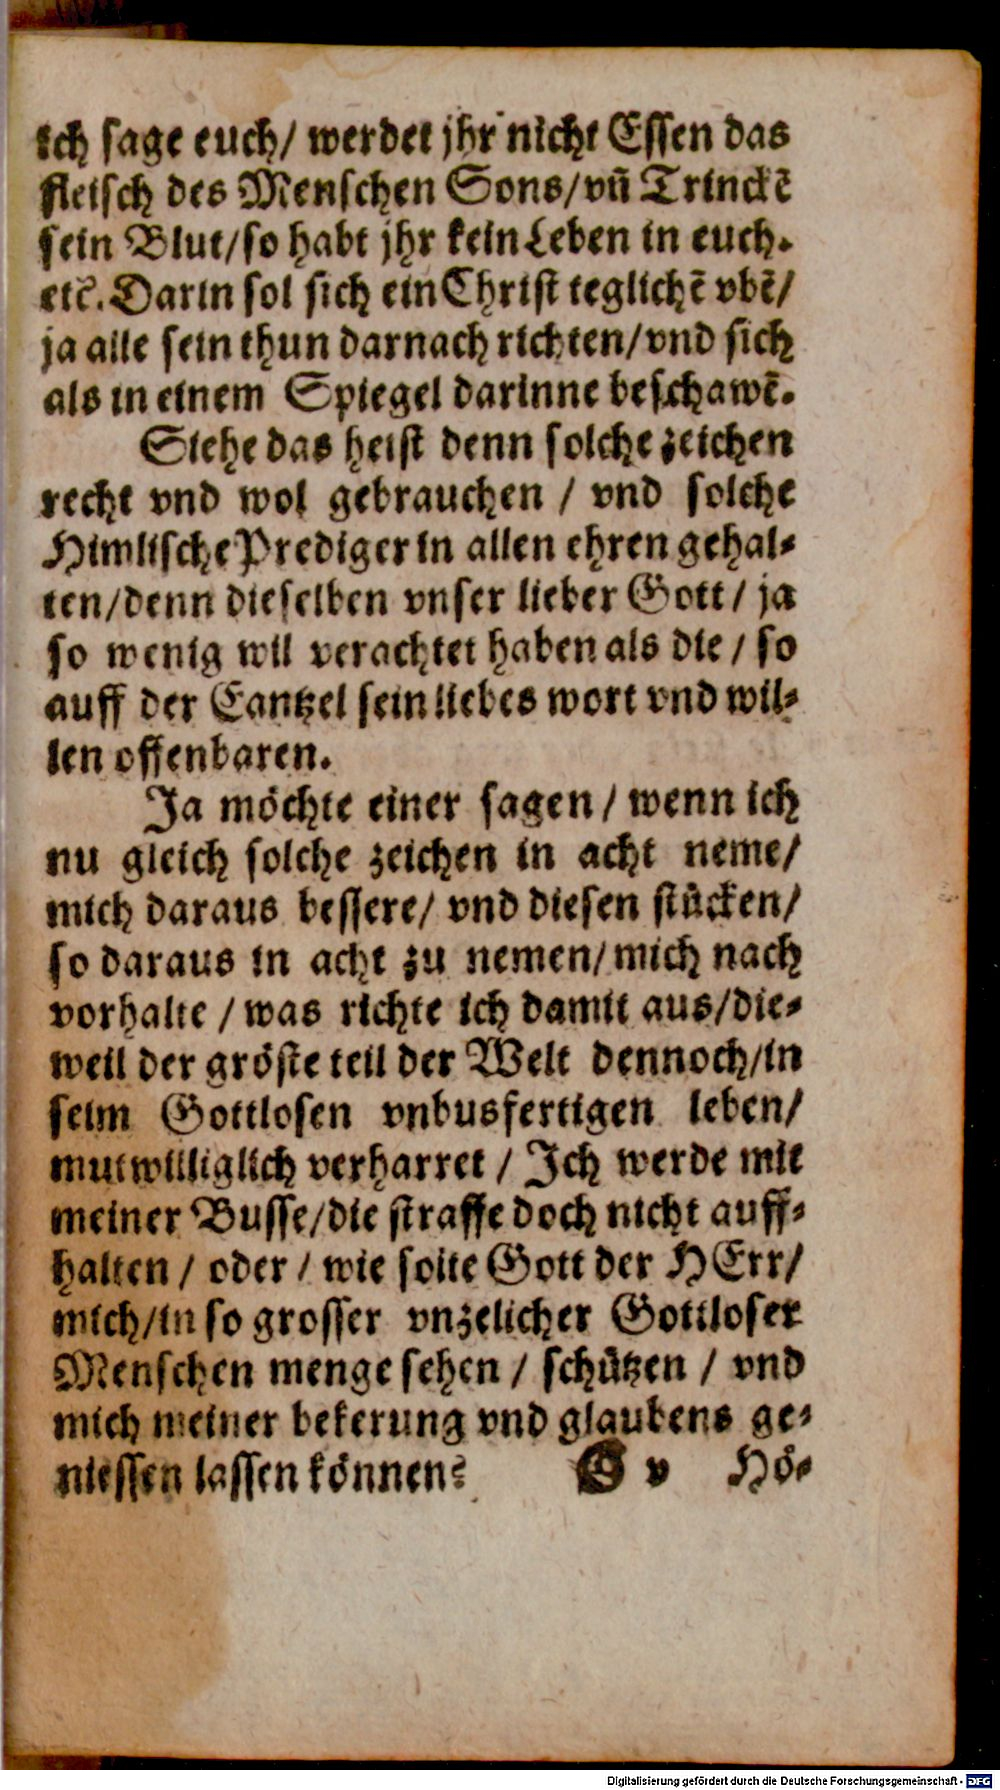 ich sage euch/ werdet jhr nicht Essen das
fleisch des Menschen Sons/vñ Trinckẽ
sein Blut/so habt jhr kein Leben in euch.
etc̃. Darin sol sich ein Christ teglichẽ vbẽ/
ja alle sein thun darnach richten/vnd sich
als in einem Spiegel darinne beschawẽ.
Siehe das heist denn solche zeichen
recht vnd wol gebrauchen / vnd solche
Himlische Prediger in allen ehren gehal-
ten/denn dieselben vnser lieber Gott/ ja
so wenig wil verachtet haben als die / so
auff der Cantzel sein liebes wort vnd wil-
len offenbaren.
Ja möchte einer sagen / wenn ich
nu gleich solche zeichen in acht neme/
mich daraus bessere/ vnd diesen stücken/
so daraus in acht zu nemen/mich nach
vorhalte / was richte ich damit aus/die-
weil der gröste teil der Welt dennoch/in
seim Gottlosen vnbusfertigen leben/
mutwilliglich verharret / Ich werde mit
meiner Busse/die straffe doch nicht auff-
halten / oder / wie solte Gott der HErr/
mich/in so grosser vnzelicher Gottloser
Menschen menge sehen / schützen / vnd
mich meiner bekerung vnd glaubens ge-
niessen lassen können?
G v Hö-
Digitalisierung gefördert durch die Deutsche Forschungsgemeinschaft - DFG